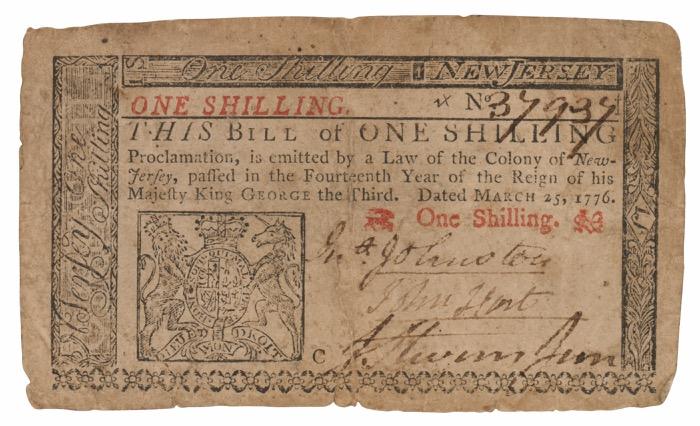 One Shilling 1 NEW JERSEY
ONE SHILLING. No 37937
THIS BILL of ONE SHILLING
Proclamation, is emitted by a Law of the Colony of New-
Jersey, passed in the Fourteenth Year of the Reign of his
Majesty King GEORGE the Third. Dated MARCH 25, 1776.
One Shilling.
Jno Johnston
John Hart
J Stevens Jun
C
DIEU ET MON DROIT
N. Jersey One
Shilling
1S